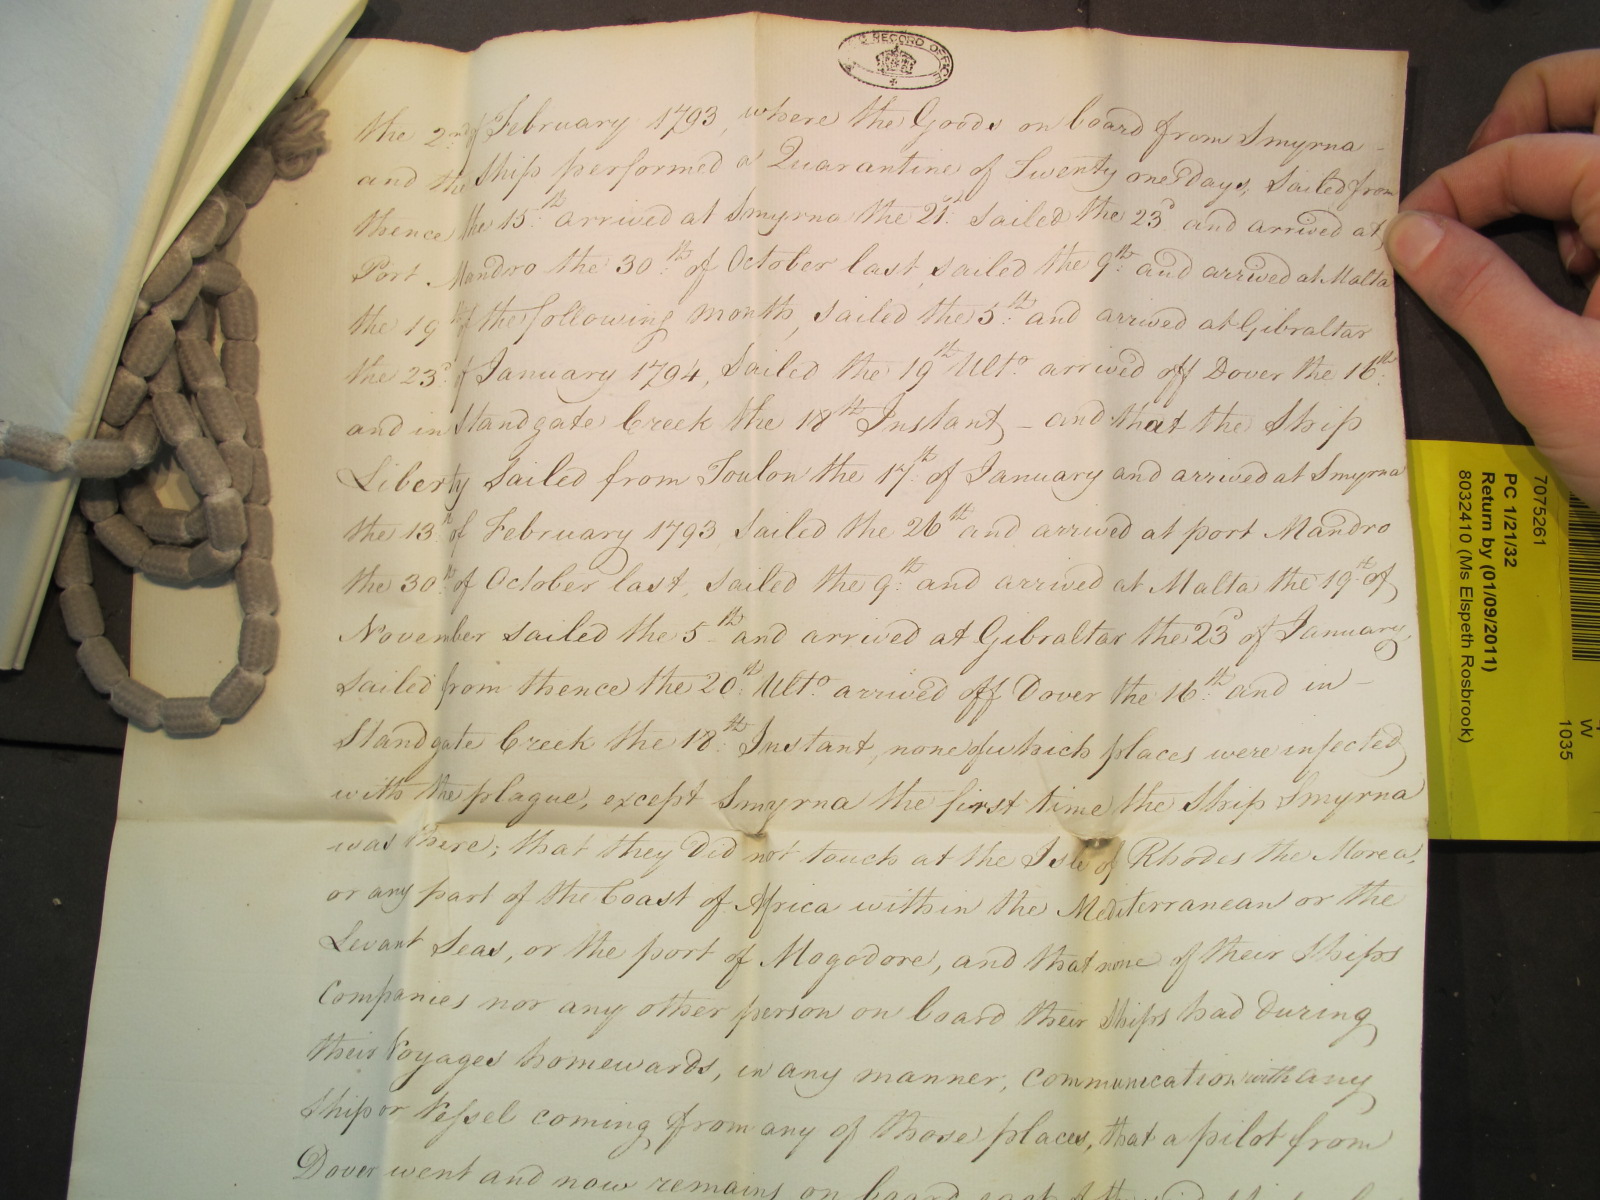 RECORD OFFICE
the 2nd of February 1793, where the Goods on board from Smyrna -
and the Ship performed a Quarantine of Twenty one Days, Sailed from
thence the 15th arrived at Smyrna the 21st Sailed the 23d and arrived at
Port Mandro the 30th of October last, sailed the 9th and arrived at Malta
the 19th of the following month, sailed the 5th and arrived at Gibraltar
the 23d of January 1794, Sailed the 19th Ulto arrived off Dover the 16th
and in Standgate Creek the 18th Instant - and that the Ship
Liberty Sailed from Toulon the 17th of January and arrived at Smyrna
the 13th of February 1793 Sailed the 26th and arrived at port Mandro
the 30th of October last, sailed the 9th and arrived at Malta the 19th of
November sailed the 5th and arrived at Gibraltar the 23d of January,
sailed from thence the 20th Ulto arrived off Dover the 16th and in -
Standgate Creek the 18th Instant, none of which places were infected
with the plague, except Smyrna the first time the Ship Smyrna
was there; that they did not touch at the Isle of Rhodes the Morea,
or any part of the Coast of Africa within the Mediterranean or the
Levant Seas, or the port of Mogodore, and that none of their Ships
Companies nor any other person on board their Ships had during
their Voyages homewards, in any manner, communication with any
Ship or Vessel coming from any of those places, that a pilot from
Dover went and now remains on board each of the said Ships
7075261
PC 1/21/32
Return by (01/09/2011)
8032410 (Ms Elspeth Rosbrook)
W
1035